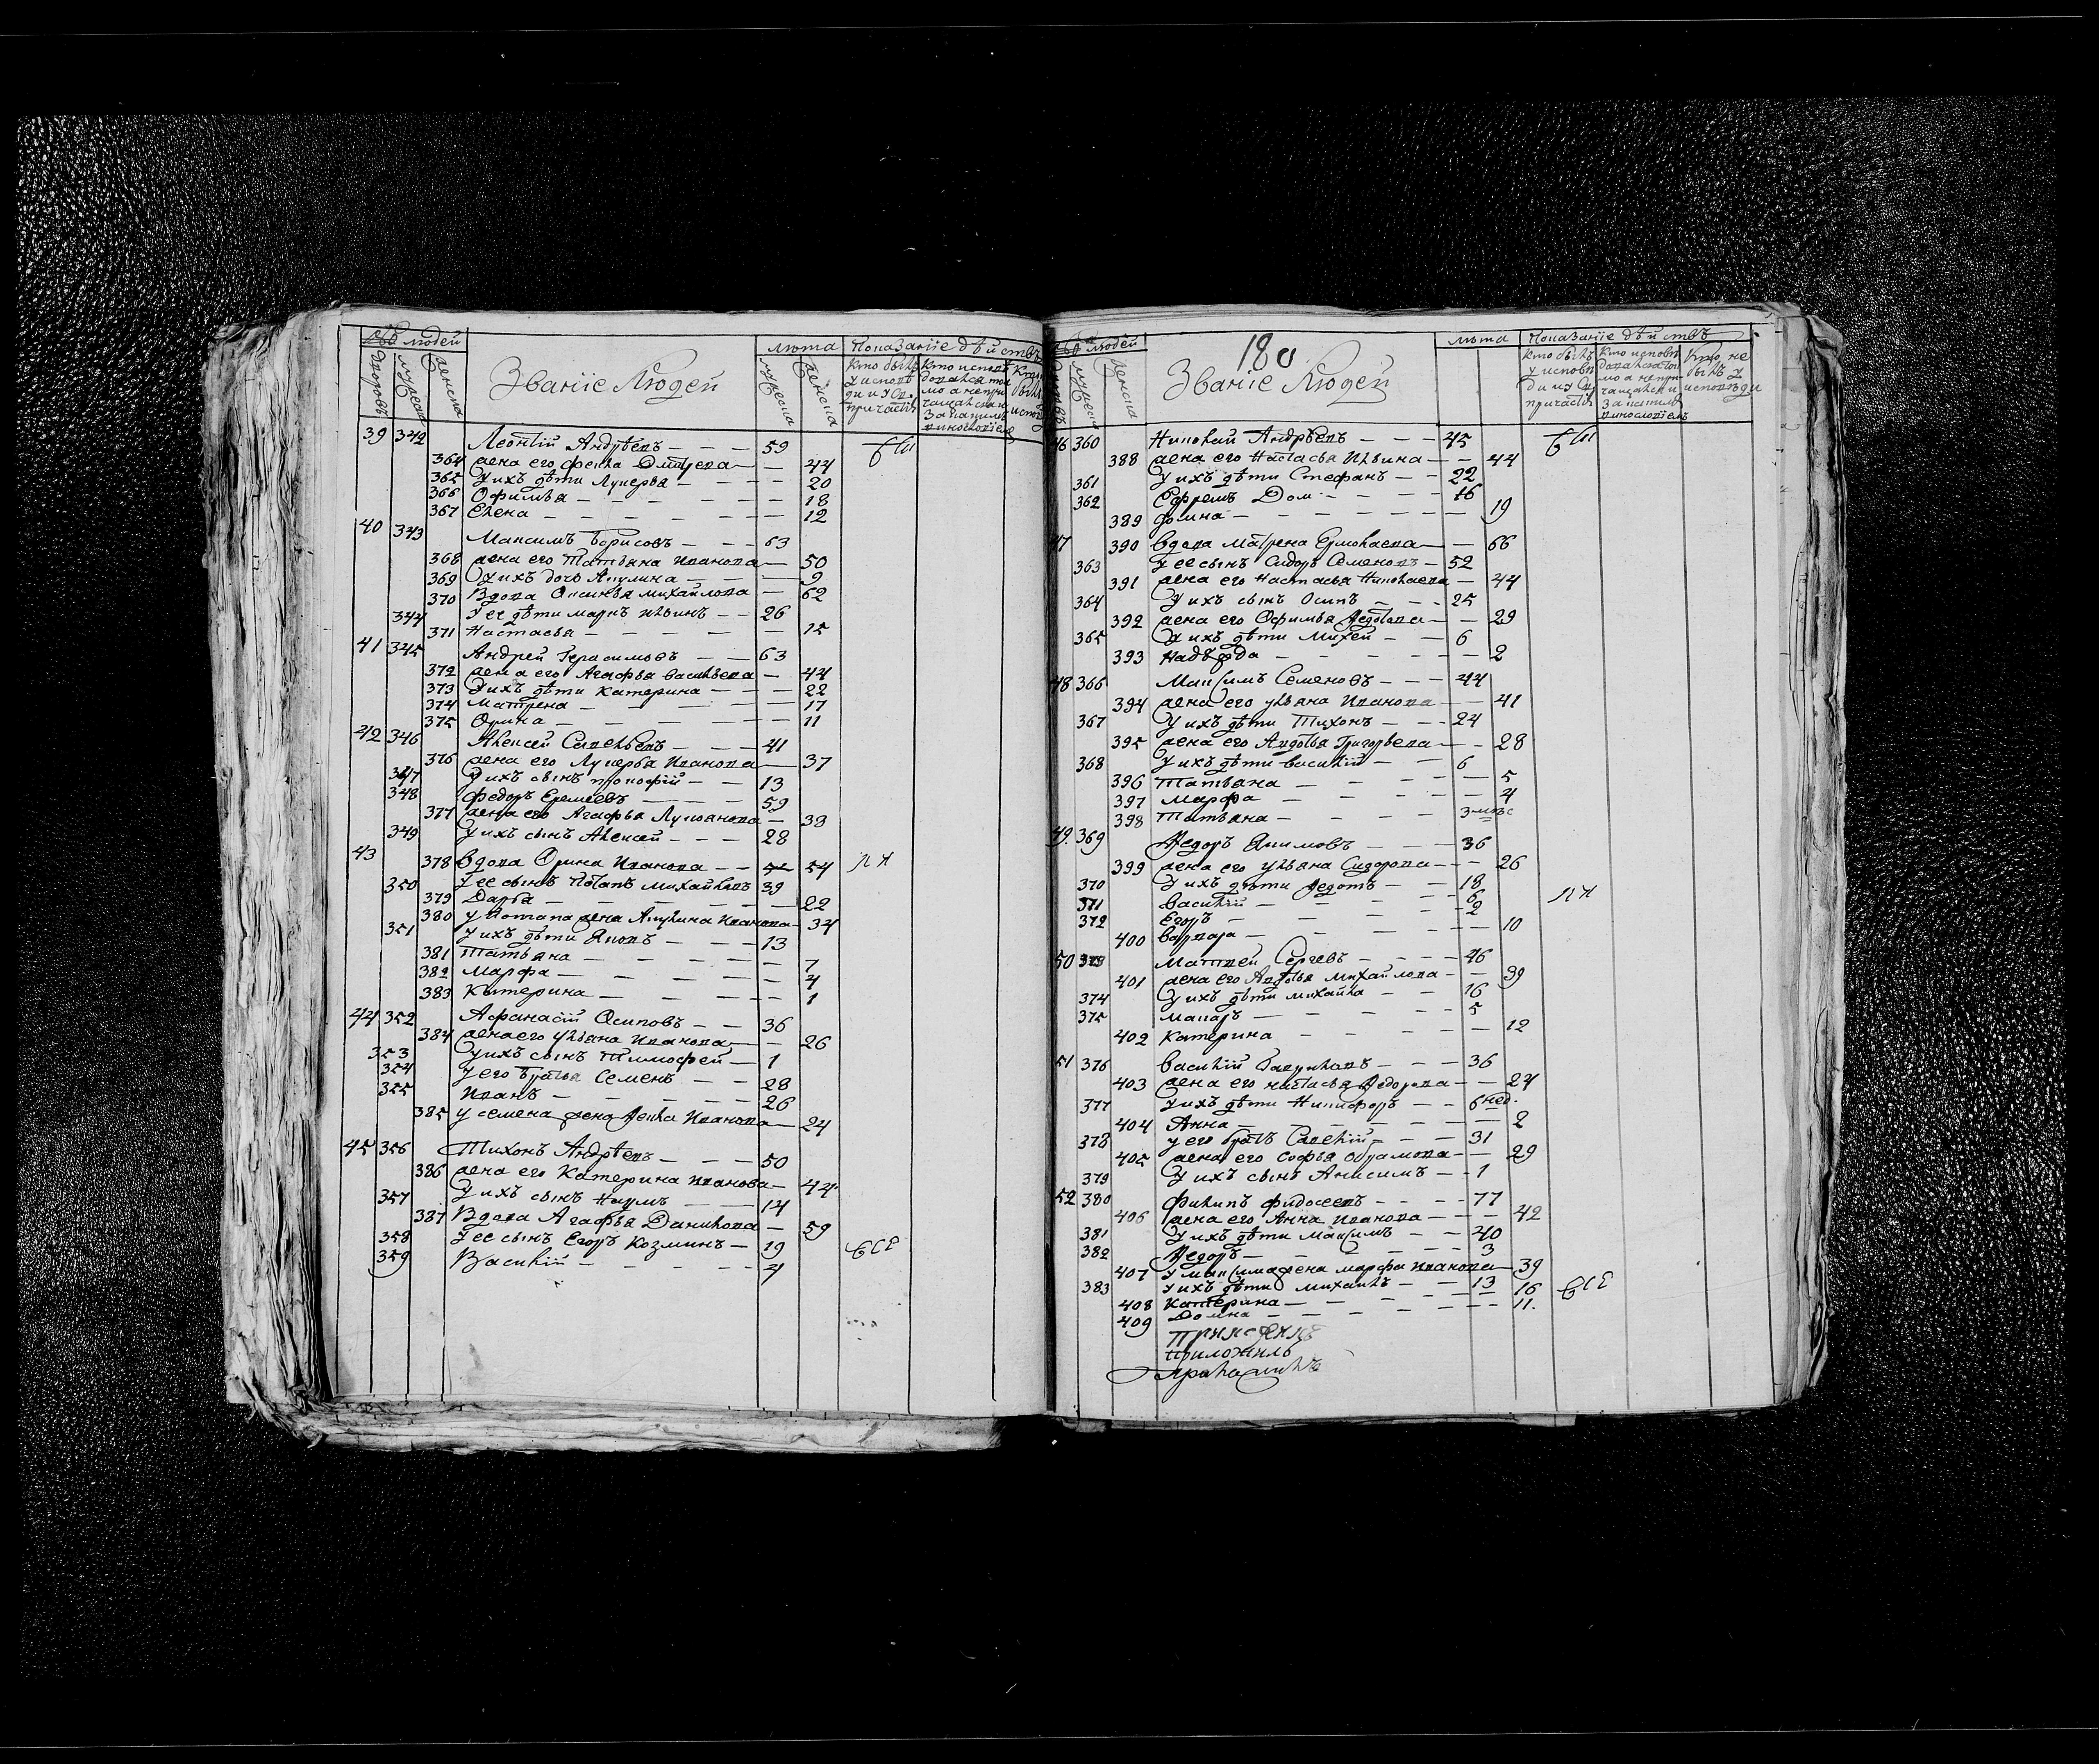 людей
дворовъ
мужеска
женска
Званiе Людей
лѣта
мужеска
женска
Показанiе дѣйствъ
39 342 Леонтiй Андрѣевъ — — — 59
364 жена его Фекла Дмитрева — — 44
365 У ихъ дѣти Лукерья — — — 20
366 Офимья — — — 18
367 Елена — — — 12
40 343 Максимъ Борисовъ — — 63
368 жена его Татьяна Иванова — 50
369 У ихъ дочь Акулина — — 9
370 Вдова Оксинья Михайлова — 62
344 У ее дѣти Маркъ Ильинъ — — 26
371 Настасья — — — 15
41 345 Андрей Герасимовъ — — 63
372 жена его Агафья Васильева — 44
373 У ихъ дѣти Катерина — — 22
374 Матрена — — — 17
375 Орина — — — 11
42 346 Алексей Савельевъ — — — 41
376 жена его Лукерья Иванова — 37
347 У ихъ сынъ Прокофiй — — 13
348 Федоръ Еремеевъ — — 59
377 жена его Агафья Лукоанова — 38
349 У ихъ сынъ Алексей — — 28
43 378 Вдова Орина Иванова — — 54
350 У ее сынъ Потапъ Михайловъ 39
379 Дарья — — — 22
380 у Потапа жена Акулина Иванова 34
351 У ихъ дѣти Яковъ — — — 13
381 Татьяна — — — 7
382 Марфа — — — 4
383 Катерина — — — 1
44 352 Афанасiй Осиповъ — — 36
384 жена его Ульяна Иванова — — 26
353 У ихъ сынъ Тимофей — 1
354 У его братья Семенъ — — 28
355 Иванъ — — — 26
385 у Семена жена Фекла Иванова — 24
45 356 Тихонъ Андрѣевъ — — — 50
386 жена его Катерина Иванова — 44
357 У ихъ сынъ Наумъ — — 14
387 Вдова Агафья Данилова — 59
358 У ее сынъ Егоръ Козминъ — 19
359 Василiй — — — 4
180
людей
мужеска
женска
Званiе Людей
лѣта
Показанiе дѣйствъ
46 360 Николай Андрѣевъ — — — 45
388 жена его Настасья Ильина — — 44
361 У ихъ дѣти Стефанъ — — 22
362 Ефремъ — — — 16
389 Домна — — — 19
47 390 Вдова Матрена Ермолаева — — 66
363 У ее сынъ Сидоръ Семеновъ — 52
391 жена его Настасья Николаева — 44
364 У ихъ сынъ Осипъ — — — 25
392 жена его Офимья Федотова — — 29
365 У ихъ дѣти Михей — — 6
393 Надѣжда — — — 2
48 366 Максимъ Семеновъ — — — 44
394 жена его Ульяна Иванова — — 41
367 У ихъ дѣти Тихонъ — — 24
395 жена его Авдотья Григорьева — — 28
368 У ихъ дѣти Василiй — — 6
396 Татьяна — — — 5
397 Марфа — — — 4
398 Татьяна — — — 3 мѣс
49 369 Федоръ Якимовъ — — — 36
399 жена его Ульяна Сидорова — — 26
370 У ихъ дѣти Федотъ — — 18
371 Василiй — — — 6
372 Егоръ — — — 2
400 Варвара — — — 10
50 373 Матвей Сергеевъ — — — 46
401 жена его Авдотья Михайлова — — 39
374 У ихъ дѣти Михайла — — 16
375 Макаръ — — — 5
402 Катерина — — — 12
51 376 Василiй Гавриловъ — — 36
403 жена его Настасья Федорова — — 24
377 У ихъ дѣти Никифоръ — — 6 нед.
404 Анна — — — 2
378 У его братъ Савелiй — — 31
405 жена его Софья Абрамова — — 29
379 У ихъ сынъ Анисимъ — — 1
52 380 Филипъ Фидосеевъ — — — 77
406 жена его Анна Иванова — — — 42
381 У ихъ дѣти Максимъ — — 40
382 Федоръ — — — 3
407 У Максима жена Марфа Иванова — 39
383 У ихъ дѣти Михаилъ — — 13
408 Катерина — — — 16
409 Домна — — — 11.